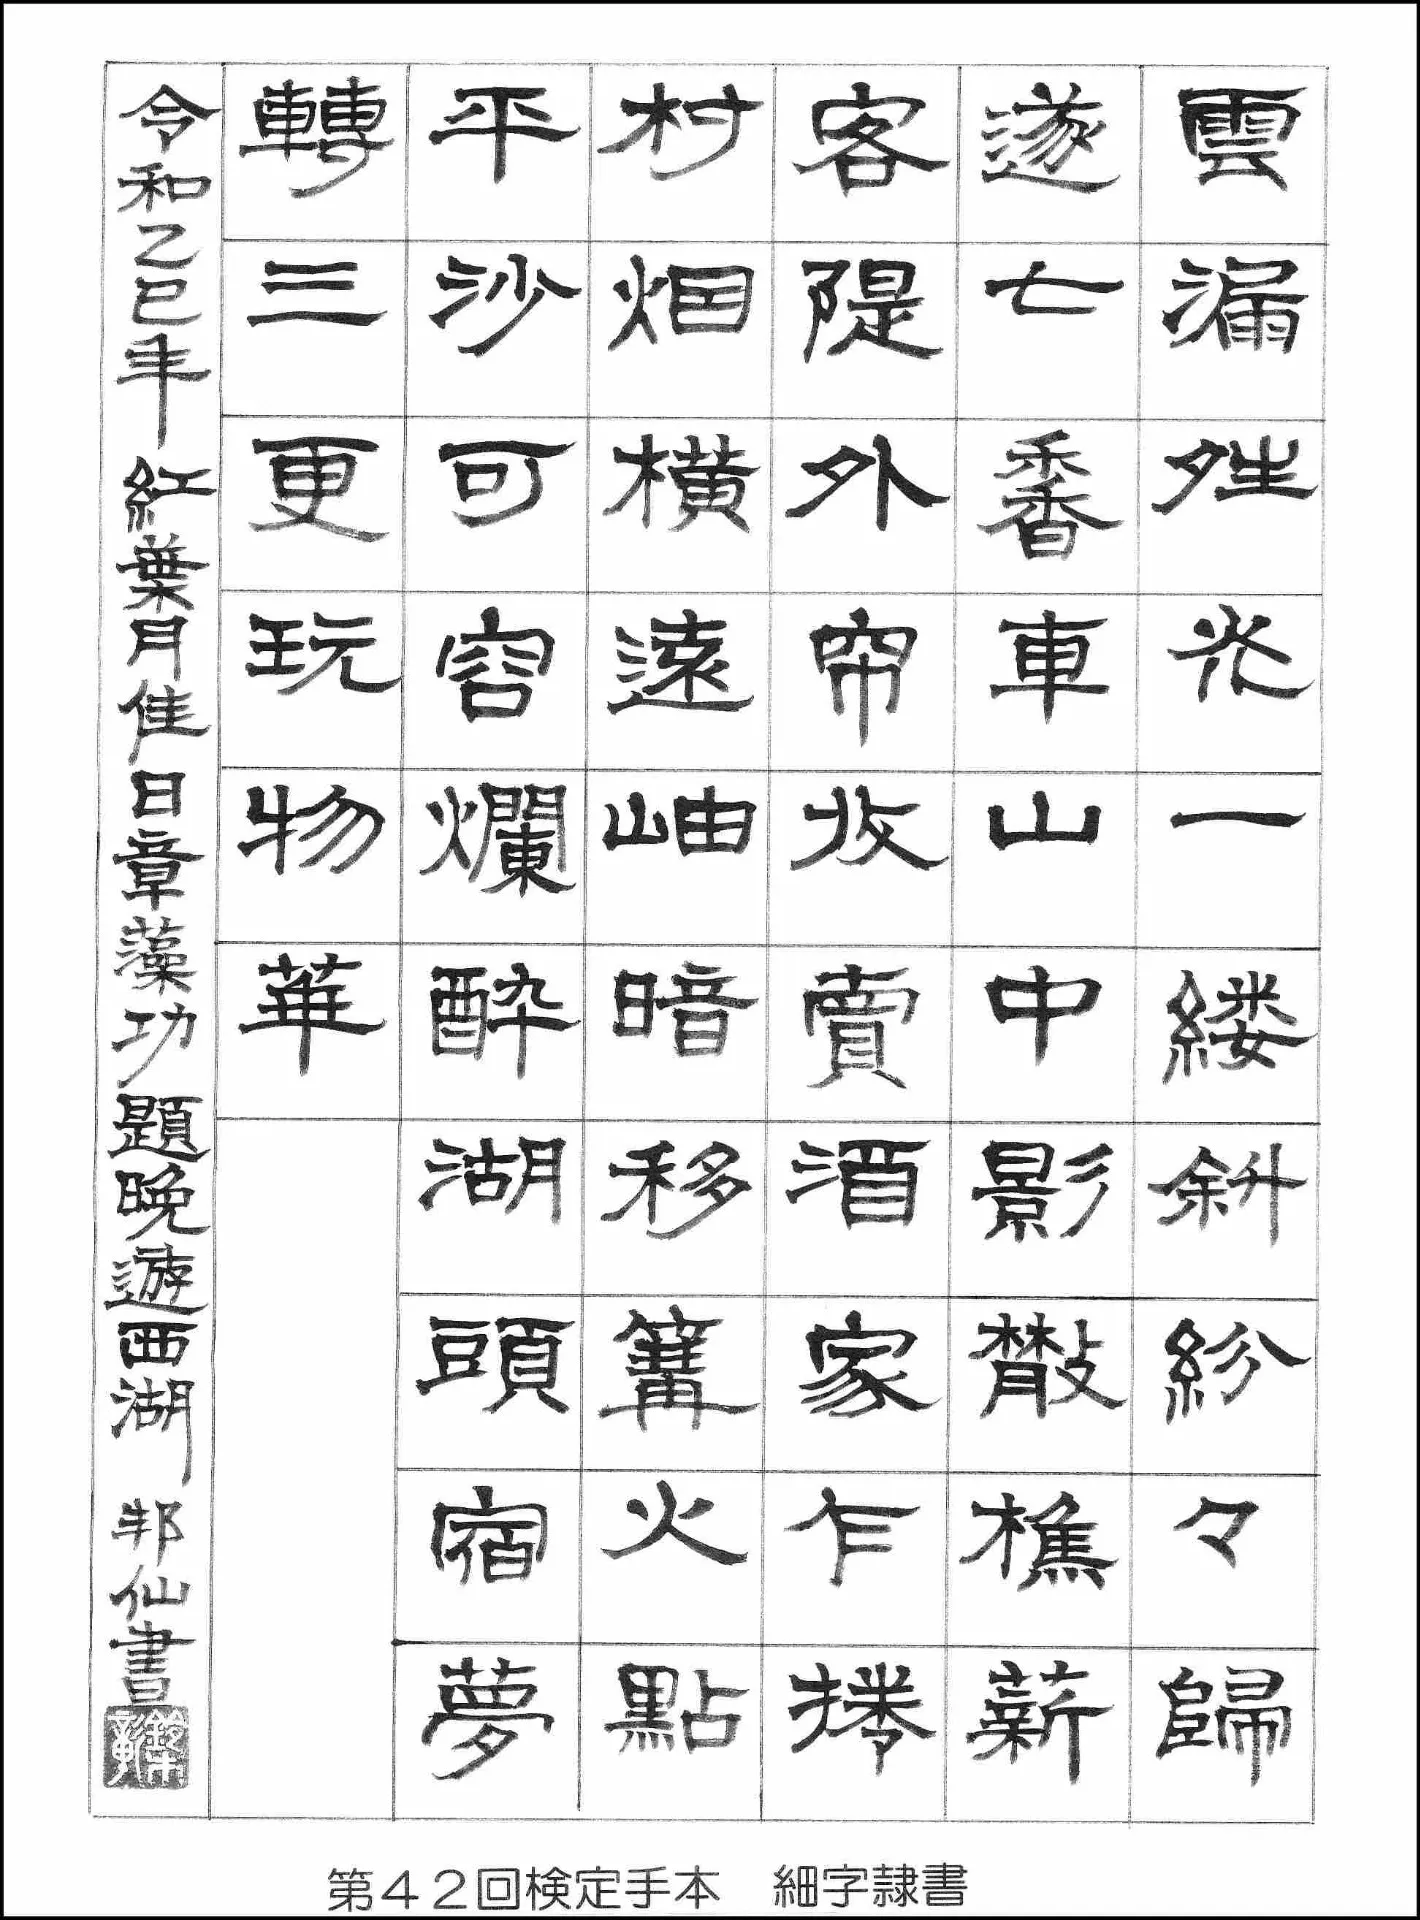 雲漏夝光一縷斜紛々歸
邃七香車山中影散樵薪
客隄外帘收賣酒家乍捲
村烟橫遠岫暗移篝火點
平沙可容爛醉湖頭宿夢
轉三更玩物華
令和乙巳年紅葉月佳日章藻功題晩遊西湖 邦仙書
第４２回検定手本　細字隷書